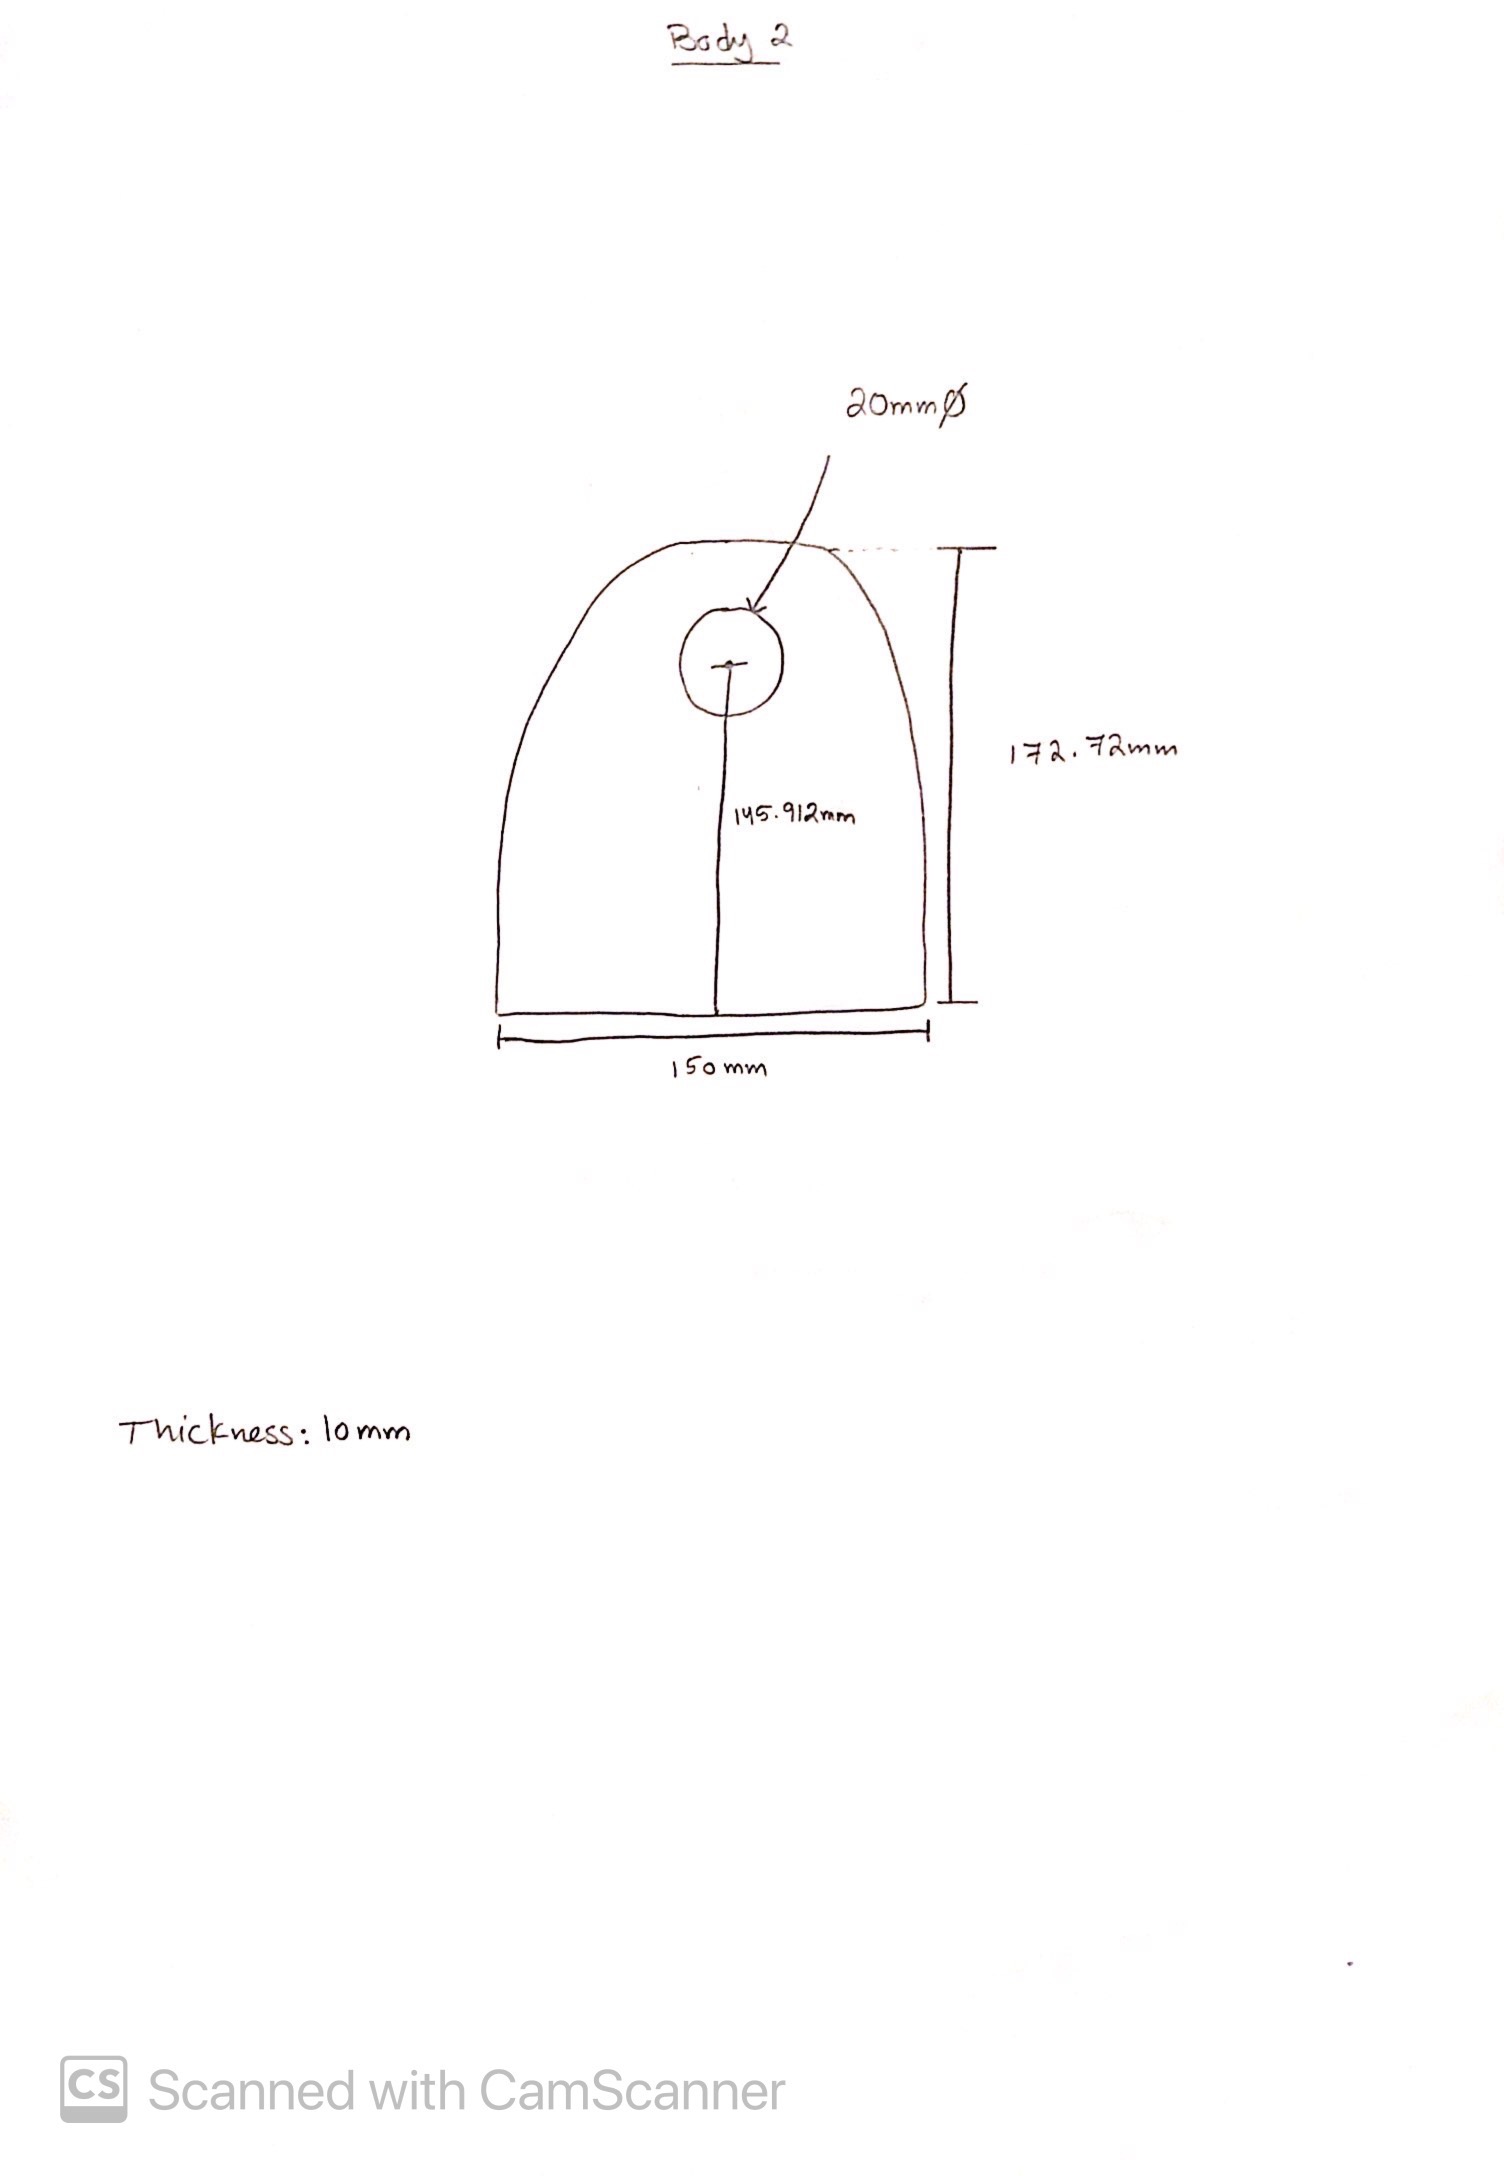 Body 2
20mmØ
172.72mm
145.912mm
150mm
Thickness: 10mm
CS Scanned with CamScanner